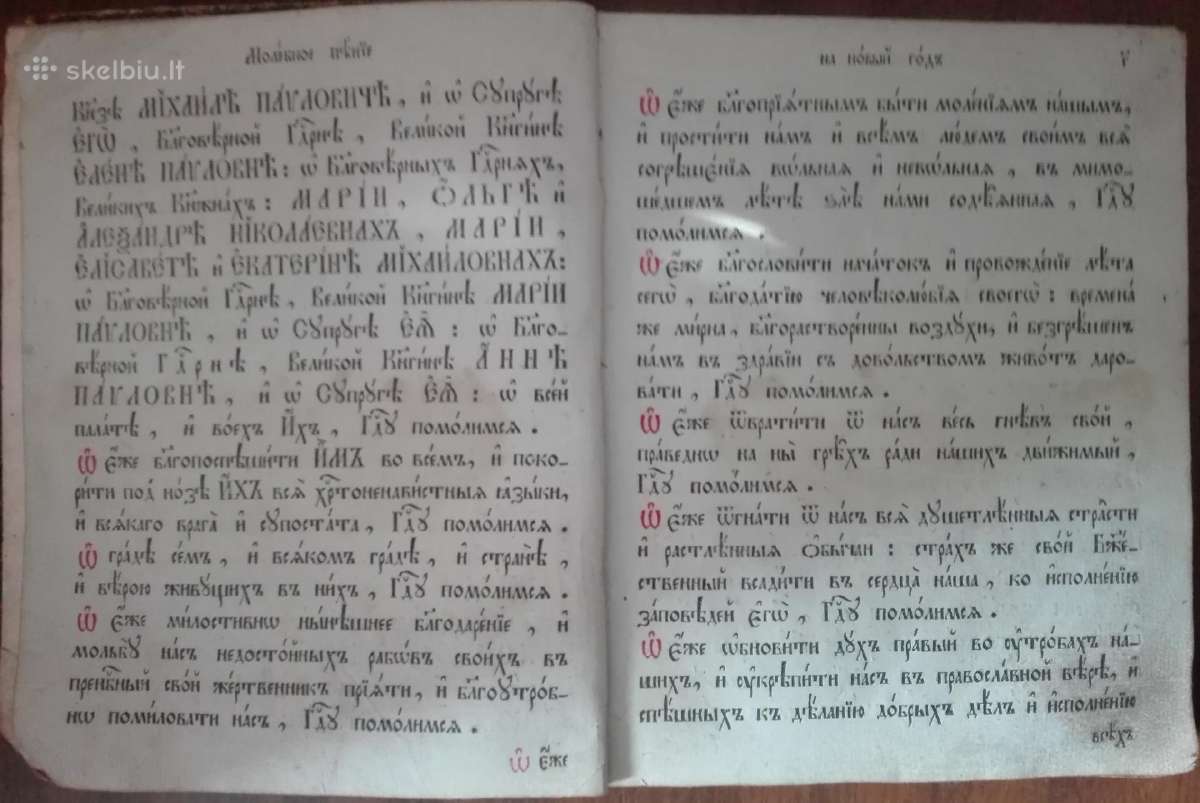 skelbiu.lt
Моле́бное пѣ́нїе
Кнѧ́зѣ МІХАИ́ЛѢ ПА́ѴЛОВИЧѢ, и҆ ѡ҆ Сꙋпрꙋ́гѣ
Е҆ГѠ̀, Бл҃говѣ́рной Гдⷭ҇рнѣ, Вели́кой Кнѧги́нѣ
Е҆ЛЕ́НѢ ПА́ѴЛОВНѢ: ѡ҆ Бл҃говѣ́рныхъ Гдⷭ҇рнѧхъ,
Вели́кихъ Кнѧжна́хъ: МАРІ́И, Ѻ҆́ЛЬГѢ и҆
А҆ЛЕѮА́НДРѢ НІКОЛА́ЕВНАХЪ, МАРІ́И,
Е҆ЛІСАВЕ́ТѢ и҆ Е҆КАТЕРІ́НѢ МІХАИ́ЛОВНАХЪ:
ѡ҆ Бл҃говѣ́рной Гдⷭ҇рнѣ, Вели́кой Кнѧги́нѣ МАРІ́И
ПА́ѴЛОВНѢ, и҆ ѡ҆ Сꙋпрꙋ́гѣ Е҆Ѧ̀: ѡ҆ Бл҃го-
вѣ́рной Гдⷭ҇рнѣ, Вели́кой Кнѧги́нѣ А҆́ННѢ
ПА́ѴЛОВНѢ, и҆ ѡ҆ Сꙋпрꙋ́гѣ Е҆Ѧ̀: ѡ҆ все́й
пала́тѣ, и҆ во́ехъ И҆́хъ, Гдⷭ҇ꙋ помо́лимсѧ.
Ѡ҆ є҆́же бл҃гопоспѣши́ти И҆̀МЪ во всѣ́мъ, и҆ поко-
ри́ти под̾ но́зѣ И҆́ХЪ всѧ̑ хрⷭ҇тоненави́стныѧ ꙗ҆зы́ки,
и҆ всѧ́каго врага̀ и҆ сꙋпоста́та, Гдⷭ҇ꙋ помо́лимсѧ.
Ѡ҆ гра́дѣ се́мъ, и҆ всѧ́комъ гра́дѣ, и҆ странѣ̀,
и҆ вѣ́рою живꙋ́щихъ въ ни́хъ, Гдⷭ҇ꙋ помо́лимсѧ.
Ѡ҆ є҆́же ми́лостивнѡ ны́нѣшнее бл҃годаре́нїе, и҆
мольбꙋ̀ на́съ недосто́йныхъ рабѡ́въ свои́хъ въ
пренбⷭ҇ный сво́й же́ртвенникъ прїѧ́ти, и҆ бл҃гоꙋтро́б-
нѡ поми́ловати на́съ, Гдⷭ҇ꙋ помо́лимсѧ.
Ѡ҆ є҆́же
на но́вый го́дъ
Ѡ҆ є҆́же бл҃гопрїѧ́тнымъ бы́ти моле́нїѧмъ на́шымъ,
и҆ прости́ти на́мъ и҆ всѣ́мъ лю́демъ свои̑мъ всѧ̑
согрѣшє́нїѧ вѡ́льнаѧ и҆ невѡ́льнаѧ, въ мимо-
ше́дшемъ лѣ́тѣ ѕлѣ̀ на́ми содѣ́ѧннаѧ, Гдⷭ҇ꙋ
помо́лимсѧ.
Ѡ҆ є҆́же бл҃гослови́ти нача́токъ и҆ провожде́нїе лѣ́та
сегѡ̀, бл҃года́тїю человѣколю́бїѧ своегѡ̀: времена́
же ми́рна, бл҃горастворе́нны возд́ꙋхи, и҆ безгрѣ́шенъ
на́мъ въ здра́вїи съ дово́льствомъ живо́тъ даро-
ва́ти, Гдⷭ҇ꙋ помо́лимсѧ.
Ѡ҆ є҆́же ѿврати́ти ѿ на́съ ве́сь гнѣ́въ сво́й,
пра́веднѡ на ны̀ грѣ̑хъ ра́ди на́шихъ дви́жимый,
Гдⷭ҇ꙋ помо́лимсѧ.
Ѡ҆ є҆́же ѿгна́ти ѿ на́съ всѧ̑ дꙋшетлѣ́нныѧ стра́сти
и҆ растлѣ́нныѧ ѻ҆бы́чаи: стра́хъ же сво́й Бж҃е́-
ственный всади́ти въ сердца̀ на́ша, ко и҆сполне́нїю
за́повѣдей є҆гѡ̀, Гдⷭ҇ꙋ помо́лимсѧ.
Ѡ҆ є҆́же ѡ҆бнови́ти дꙋ́хъ пра́вый во ᲂу҆тро́бахъ на́-
шихъ, и҆ ᲂу҆крѣпи́ти на́съ въ правосла́вной вѣ́рѣ, и҆
спѣ́шныхъ къ дѣ́ланїю до́брыхъ дѣ́лъ и҆ и҆сполне́нїю
всѣ́хъ